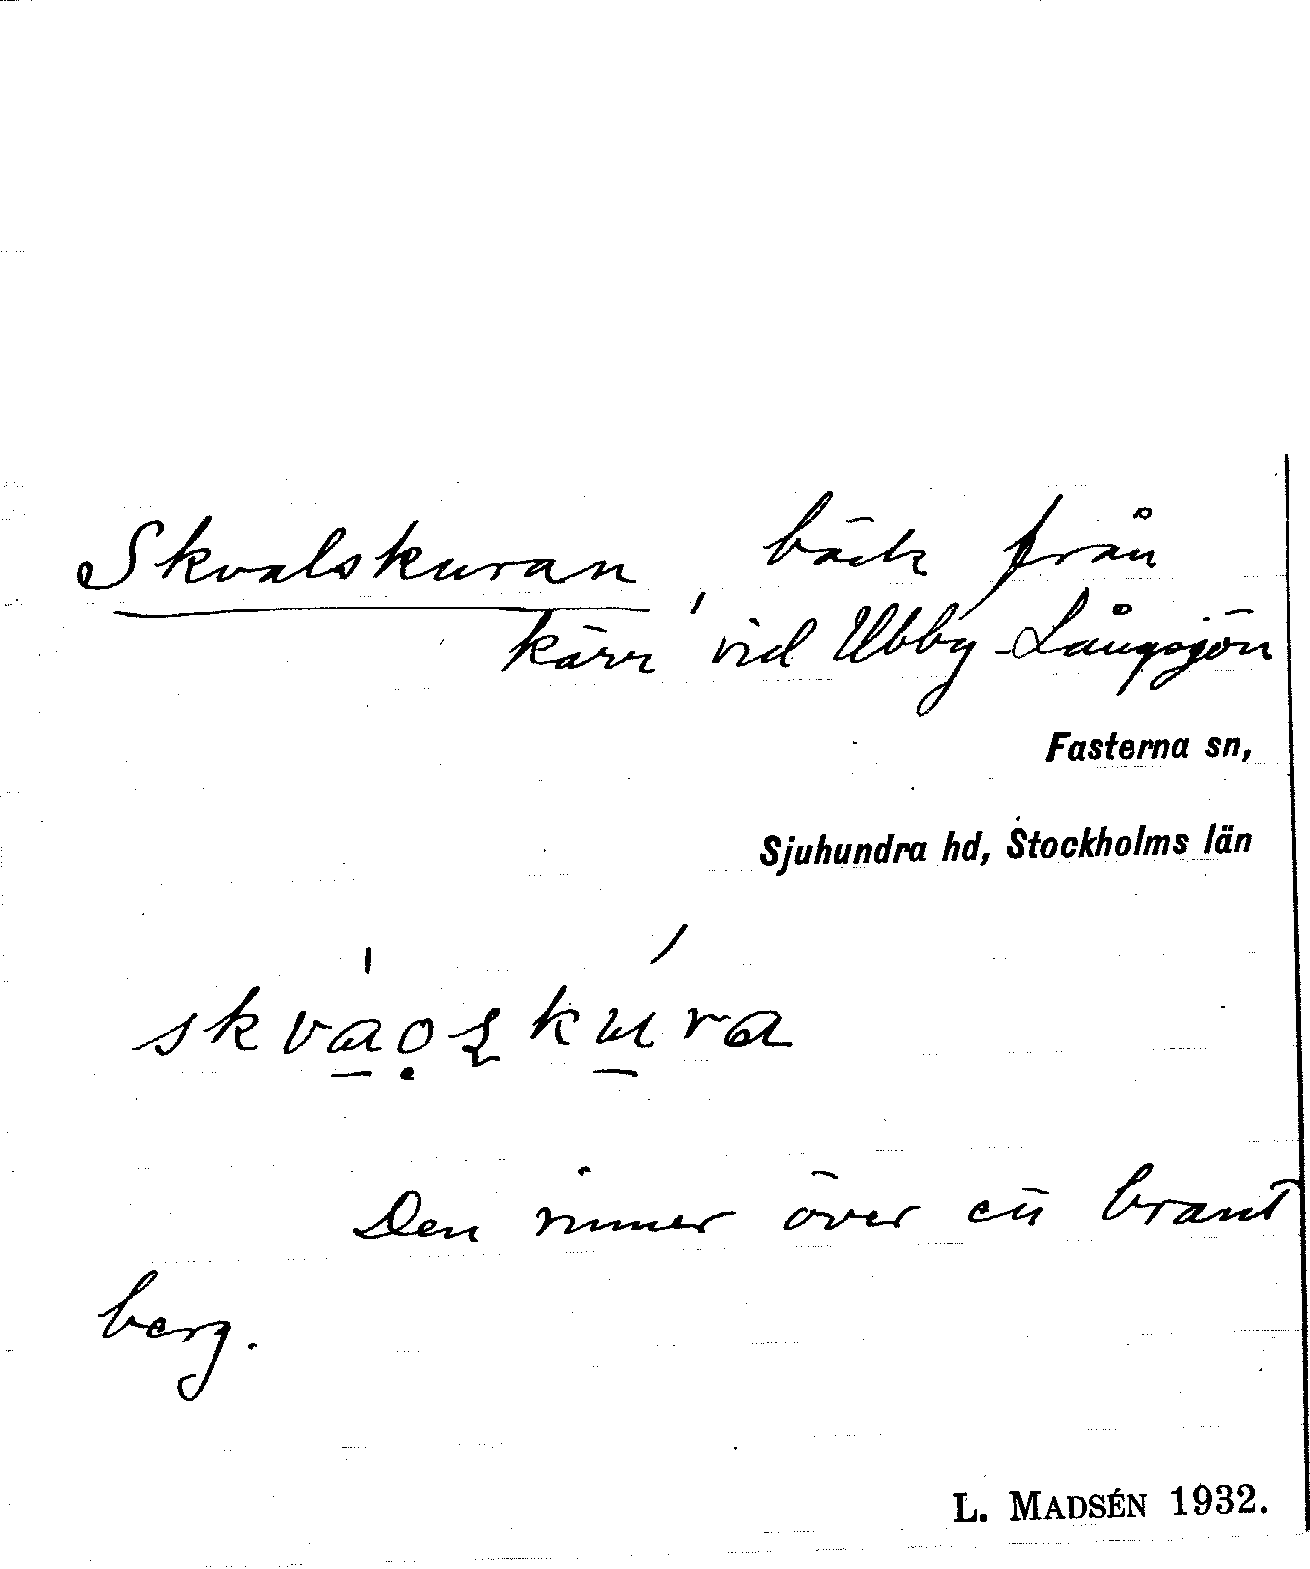 Skvalskuran, bäck från
kärr vid Ubby-Långsjön
Fasterna sn,
Sjuhundra hd, Stockholms län
Den rinner över ett brant
berg.
L. MADSÉN 1932.